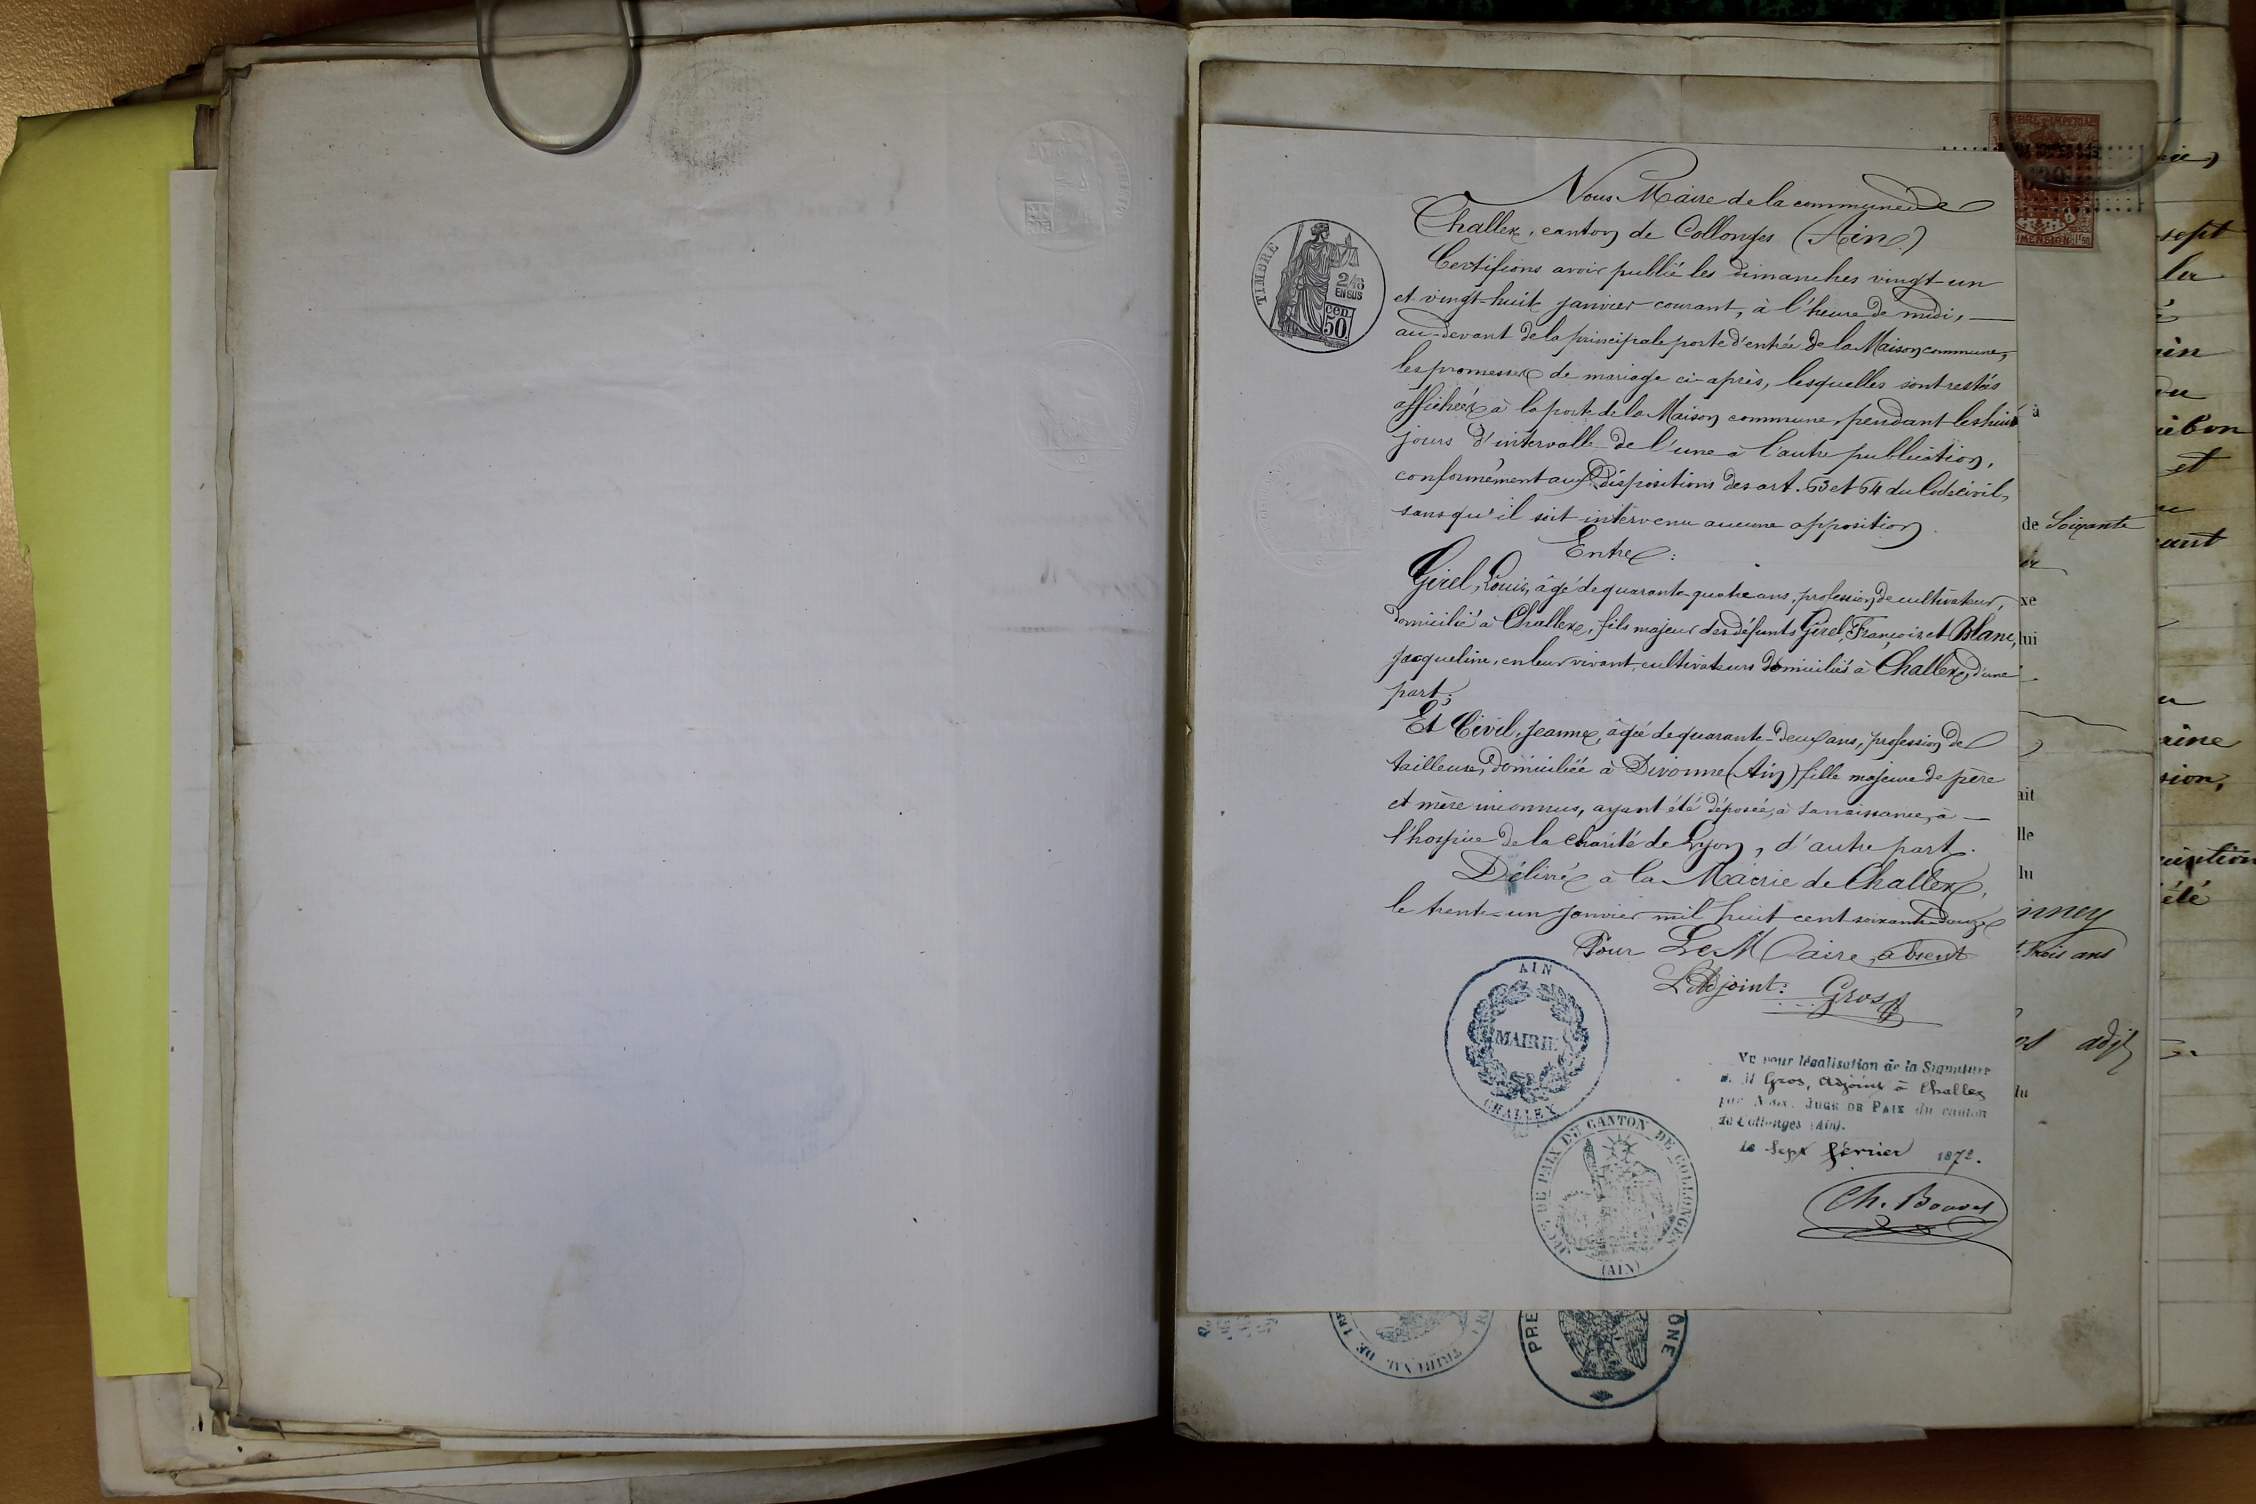 Nous Maire de la commune de
Challex, canton de Collonges (Ain)
Certifions avoir publié les dimanches vingt-un
et vingt-huit janvier courant, à l'heure de midi,
au-devant de la principale porte d'entrée de la Maison commune,
les promesses de mariage ci-après, lesquelles sont restées
affichées à la porte de la Maison commune, pendant les huit
jours d'intervalle de l'une à l'autre publication,
conformément aux dispositions des art. 63 et 64 du Code civil,
sans qu'il soit intervenu aucune opposition.
Entre :
Girel, Louis, âgé de quarante-quatre ans, profession de cultivateur,
domicilié à Challex, fils majeur des défunts Girel, François et Blanc,
Jacqueline, en leur vivant, cultivateurs domiciliés à Challex, d'une
part;
Et Civil, Jeanne, âgée de quarante-deux ans, profession de
tailleuse, domiciliée à Divonne (Ain) fille majeure de père
et mère inconnus, ayant été déposée, à sa naissance, à
l'hospice de la charité de Lyon, d'autre part.
Délivré à la Mairie de Challex,
le trente-un janvier mil huit cent soixante-douze
Pour Le Maire absent
L'Adjoint : Gros
TIMBRE
2/10
EN SUS
cen.
50.
AIN
MAIRIE
CHALLEX
Vu pour légalisation de la Signature
de M Gros, adjoint à Challex
par Nous, JUGE DE PAIX du canton
de Collonges (Ain).
Le sept février 1872.
Ch. Bouvet
JUGE DE PAIX DU CANTON DE COLLONGES
(AIN)
TRIBUNAL DE
PRE
ÔNE
à
de Soixante
xe
lui
ait
lle
lu
trois ans
adj
lu
sept
et
été